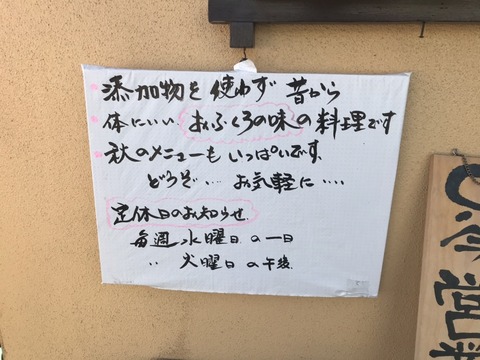 添加物を使わず 昔から
体にいい おふくろの味の料理です
秋のメニューも いっぱいです、
どうぞ… お気軽に‥‥
定休日のお知らせ.
毎週 水曜日 の 一日
〃 火曜日 の 午後.
営業